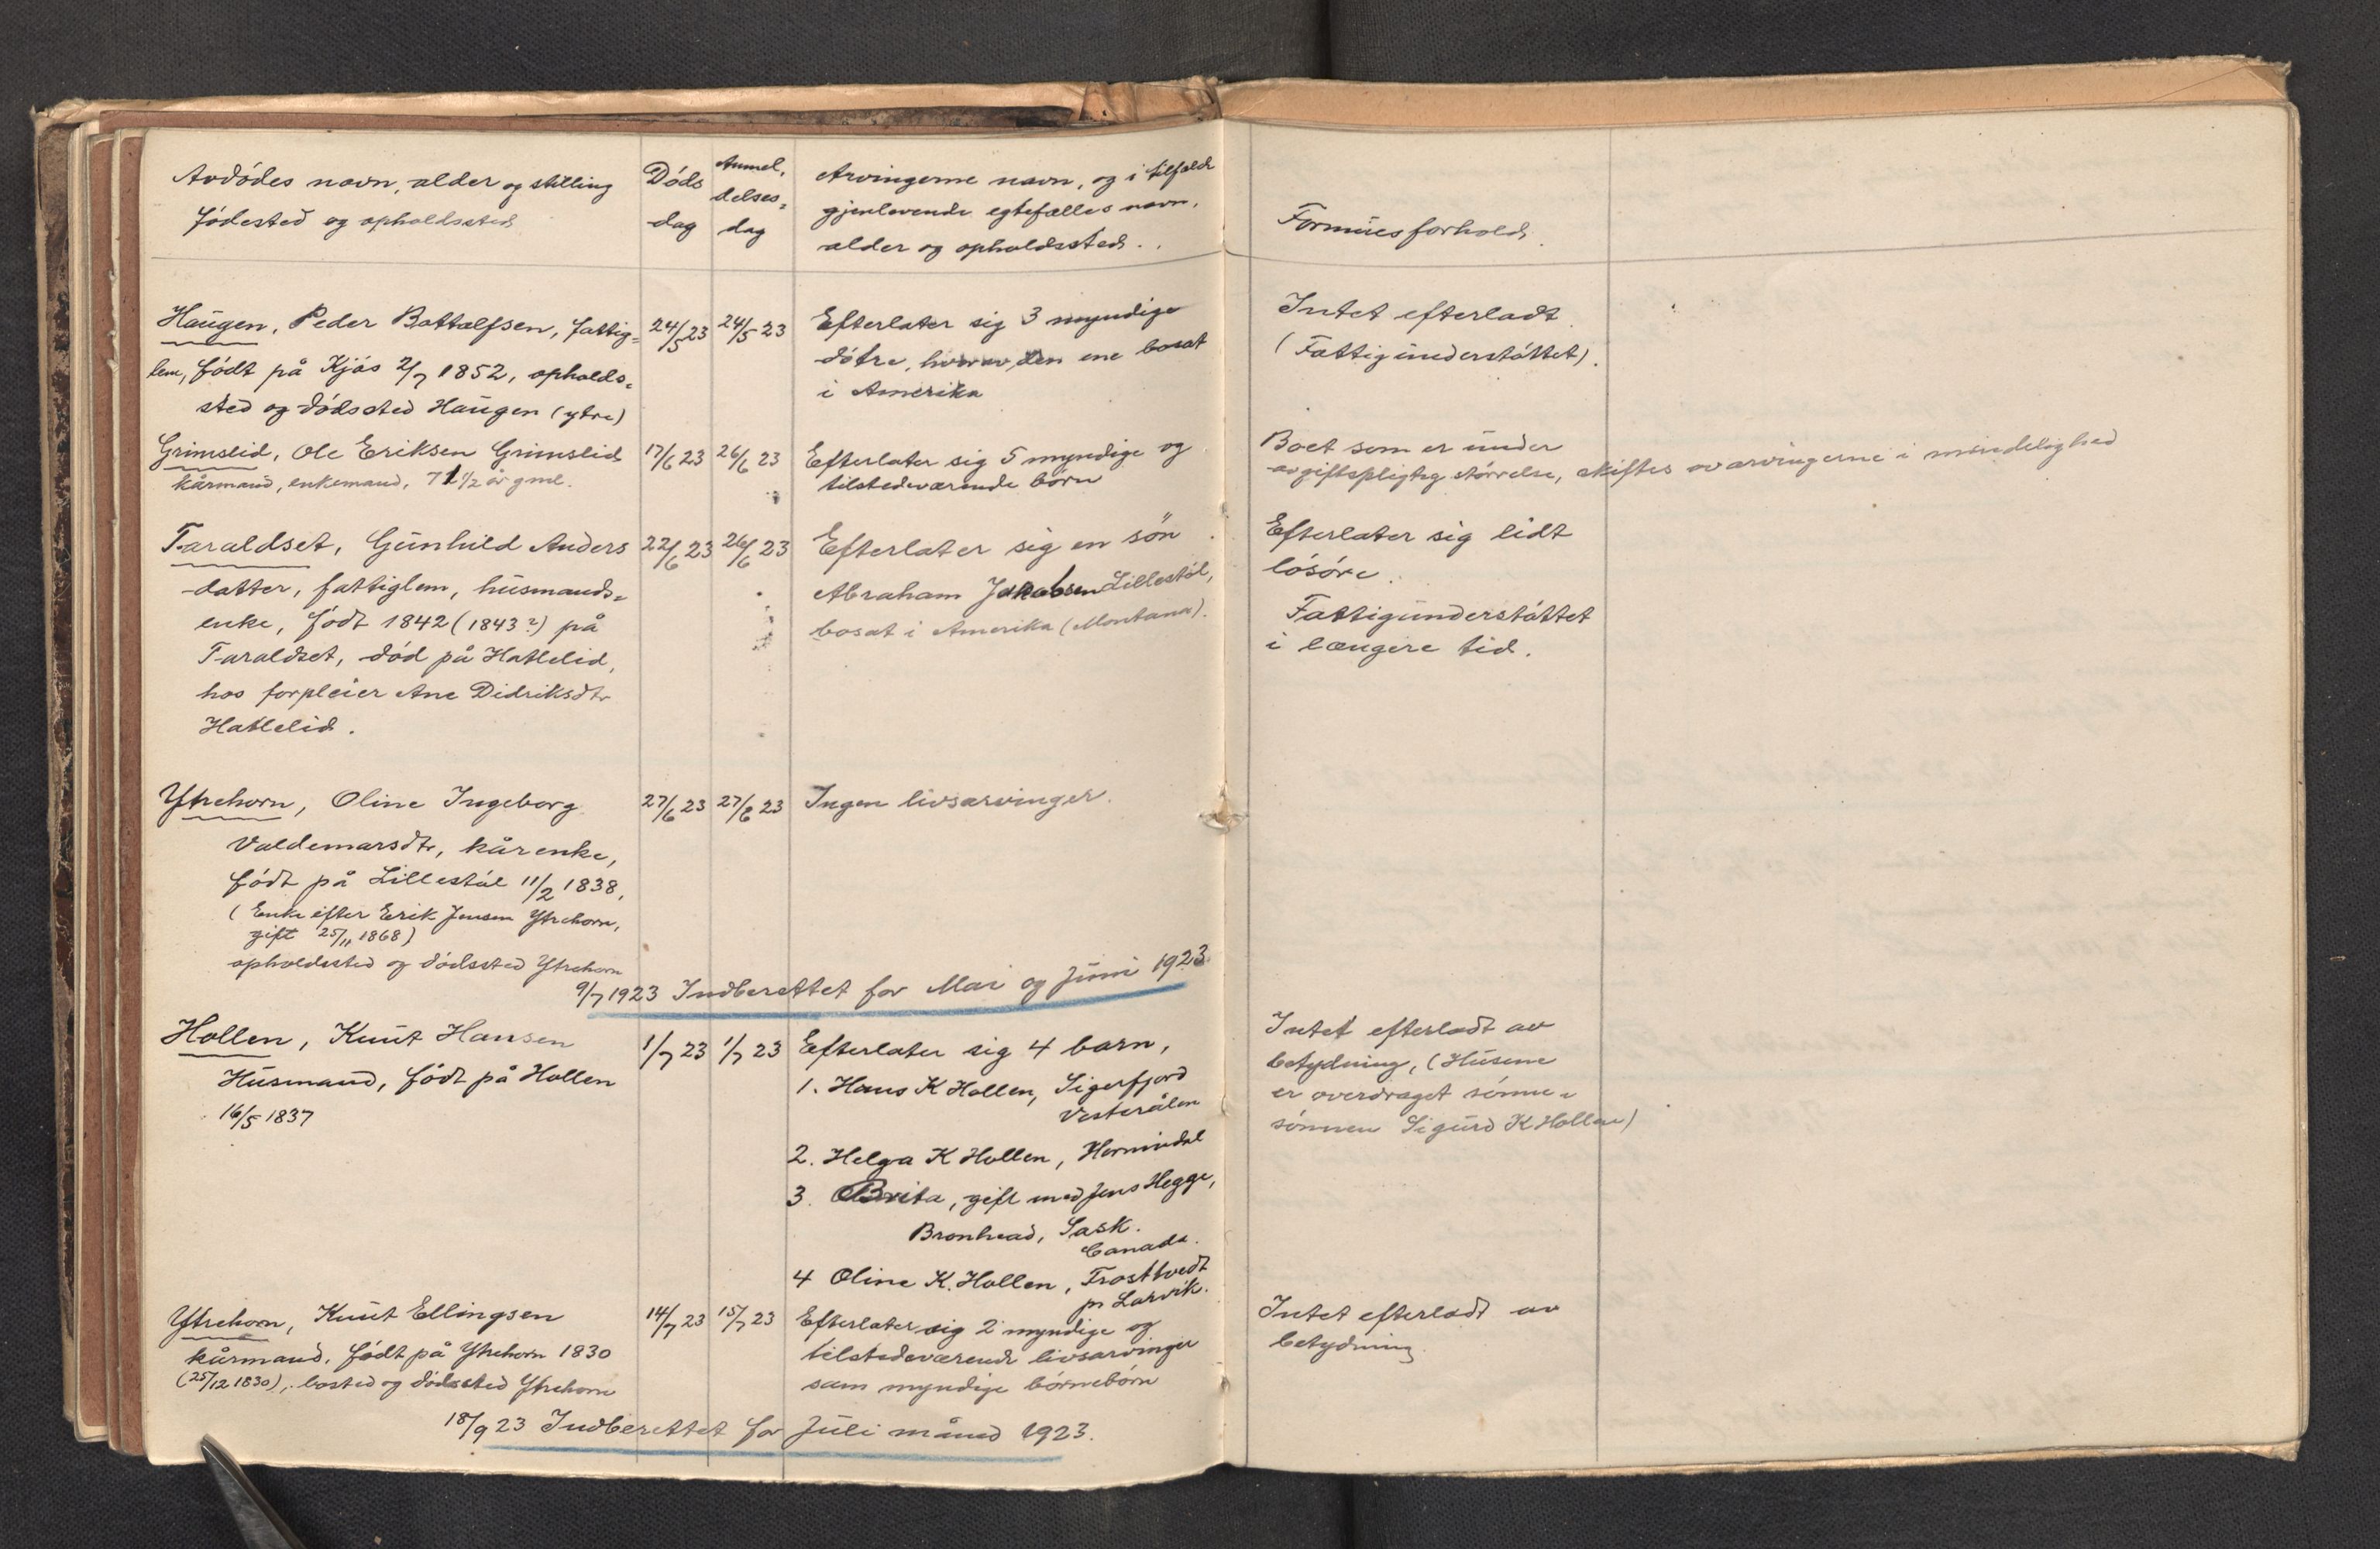 Avdödes navn, alder og stilling
födested og opholdssted
Döds
dag
Anmel,
delses-
dag
Arvingerne navn, og i tilfælde
gjenlevende egtefælles navn,
alder og opholdssted.
Formuesforhold.
Haugen, Peder Bottolfsen, fattig-
lem, födt på Kjós 2/7 1852, opholds-
sted og dödssted Haugen (ytre)
24/5 23
24/5 23
Efterlater sig 3 myndige
dötre, hvorav den ene bosat
i Amerika
Intet efterladt
(Fattigunderstöttet).
Grimslid, Ole Eriksen Grimslid
kårmand, enkemand, 71 1/2 år gml.
17/6 23
26/6 23
Efterlater sig 5 myndige og
tilstedeværende börn
Boet som er under
avgiftspligtig störrelse, skiftes av arvingerne i mindelighed
Taraldset, Gunhild Anders
datter, fattiglem, husmands-
enke, födt 1842 (1843?) på
Taraldset, död på Hatlelid,
hos forpleier Ane Didriksdtr
Hatlelid.
22/6 23
26/6 23
Efterlater sig en sön
Abraham Jakobsen Lillestöl,
bosat i Amerika (Montana).
Efterlater sig lidt
lösöre.
Fattigunderstöttet
i længere tid.
Ytrehorn, Oline Ingeborg
Valdemarsdtr, kårenke,
födt på Lillestöl 11/2 1838,
(Enke efter Erik Jensen Ytrehorn,
gift 25/11 1868)
opholdssted og dödssted Ytrehorn
27/6 23
27/6 23
Ingen livsarvinger.
9/7 1923 Indberettet for Mai og Juni 1923.
Hollen, Knut Hansen
Husmand, födt på Hollen
16/5 1837
1/7 23
1/7 23
Efterlater sig 4 barn,
1. Hans K Hollen, Sigerfjord
Vesterålen
2. Helga K Hollen, Hornindal
3. Brita, gift med Jens Hegge,
Bronhead, Sask.
Canada.
4 Oline K. Hollen, Trosttvedt
pr Larvik.
Intet efterladt av
betydning, (Husene
er overdraget sönne-
sönnen Sigurd K Hollen)
Ytrehorn, Knut Ellingsen
kårmand, födt på Ytrehorn 1830
(25/12 1830), bosted og dödssted Ytrehorn
14/7 23
15/7 23
Efterlater sig 2 myndige og
tilstedeværende livsarvinger
sam myndige börnebörn
Intet efterladt av
betydning
18/9 23 Indberettet for Juli måned 1923.